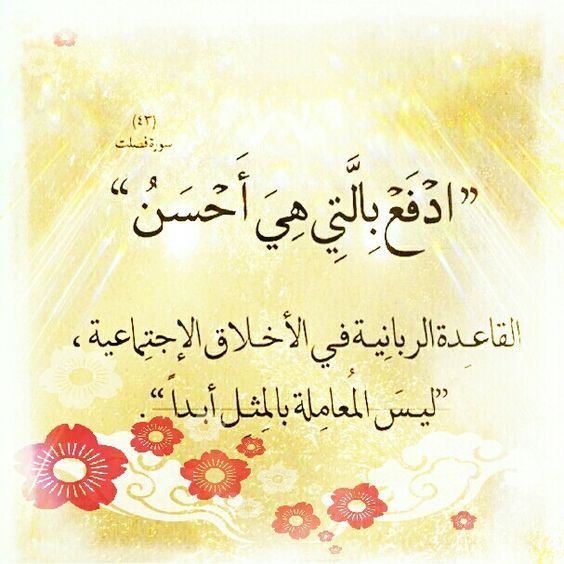 (٤٣)
سورة فصلت
”ادْفَعْ بِالَّتِي هِيَ أَحْسَنُ“
القاعِدة الربانِية في الأخلاق الإجتِماعية ،
”ليسَ المُعامِلة بالمِثل أبداً“.